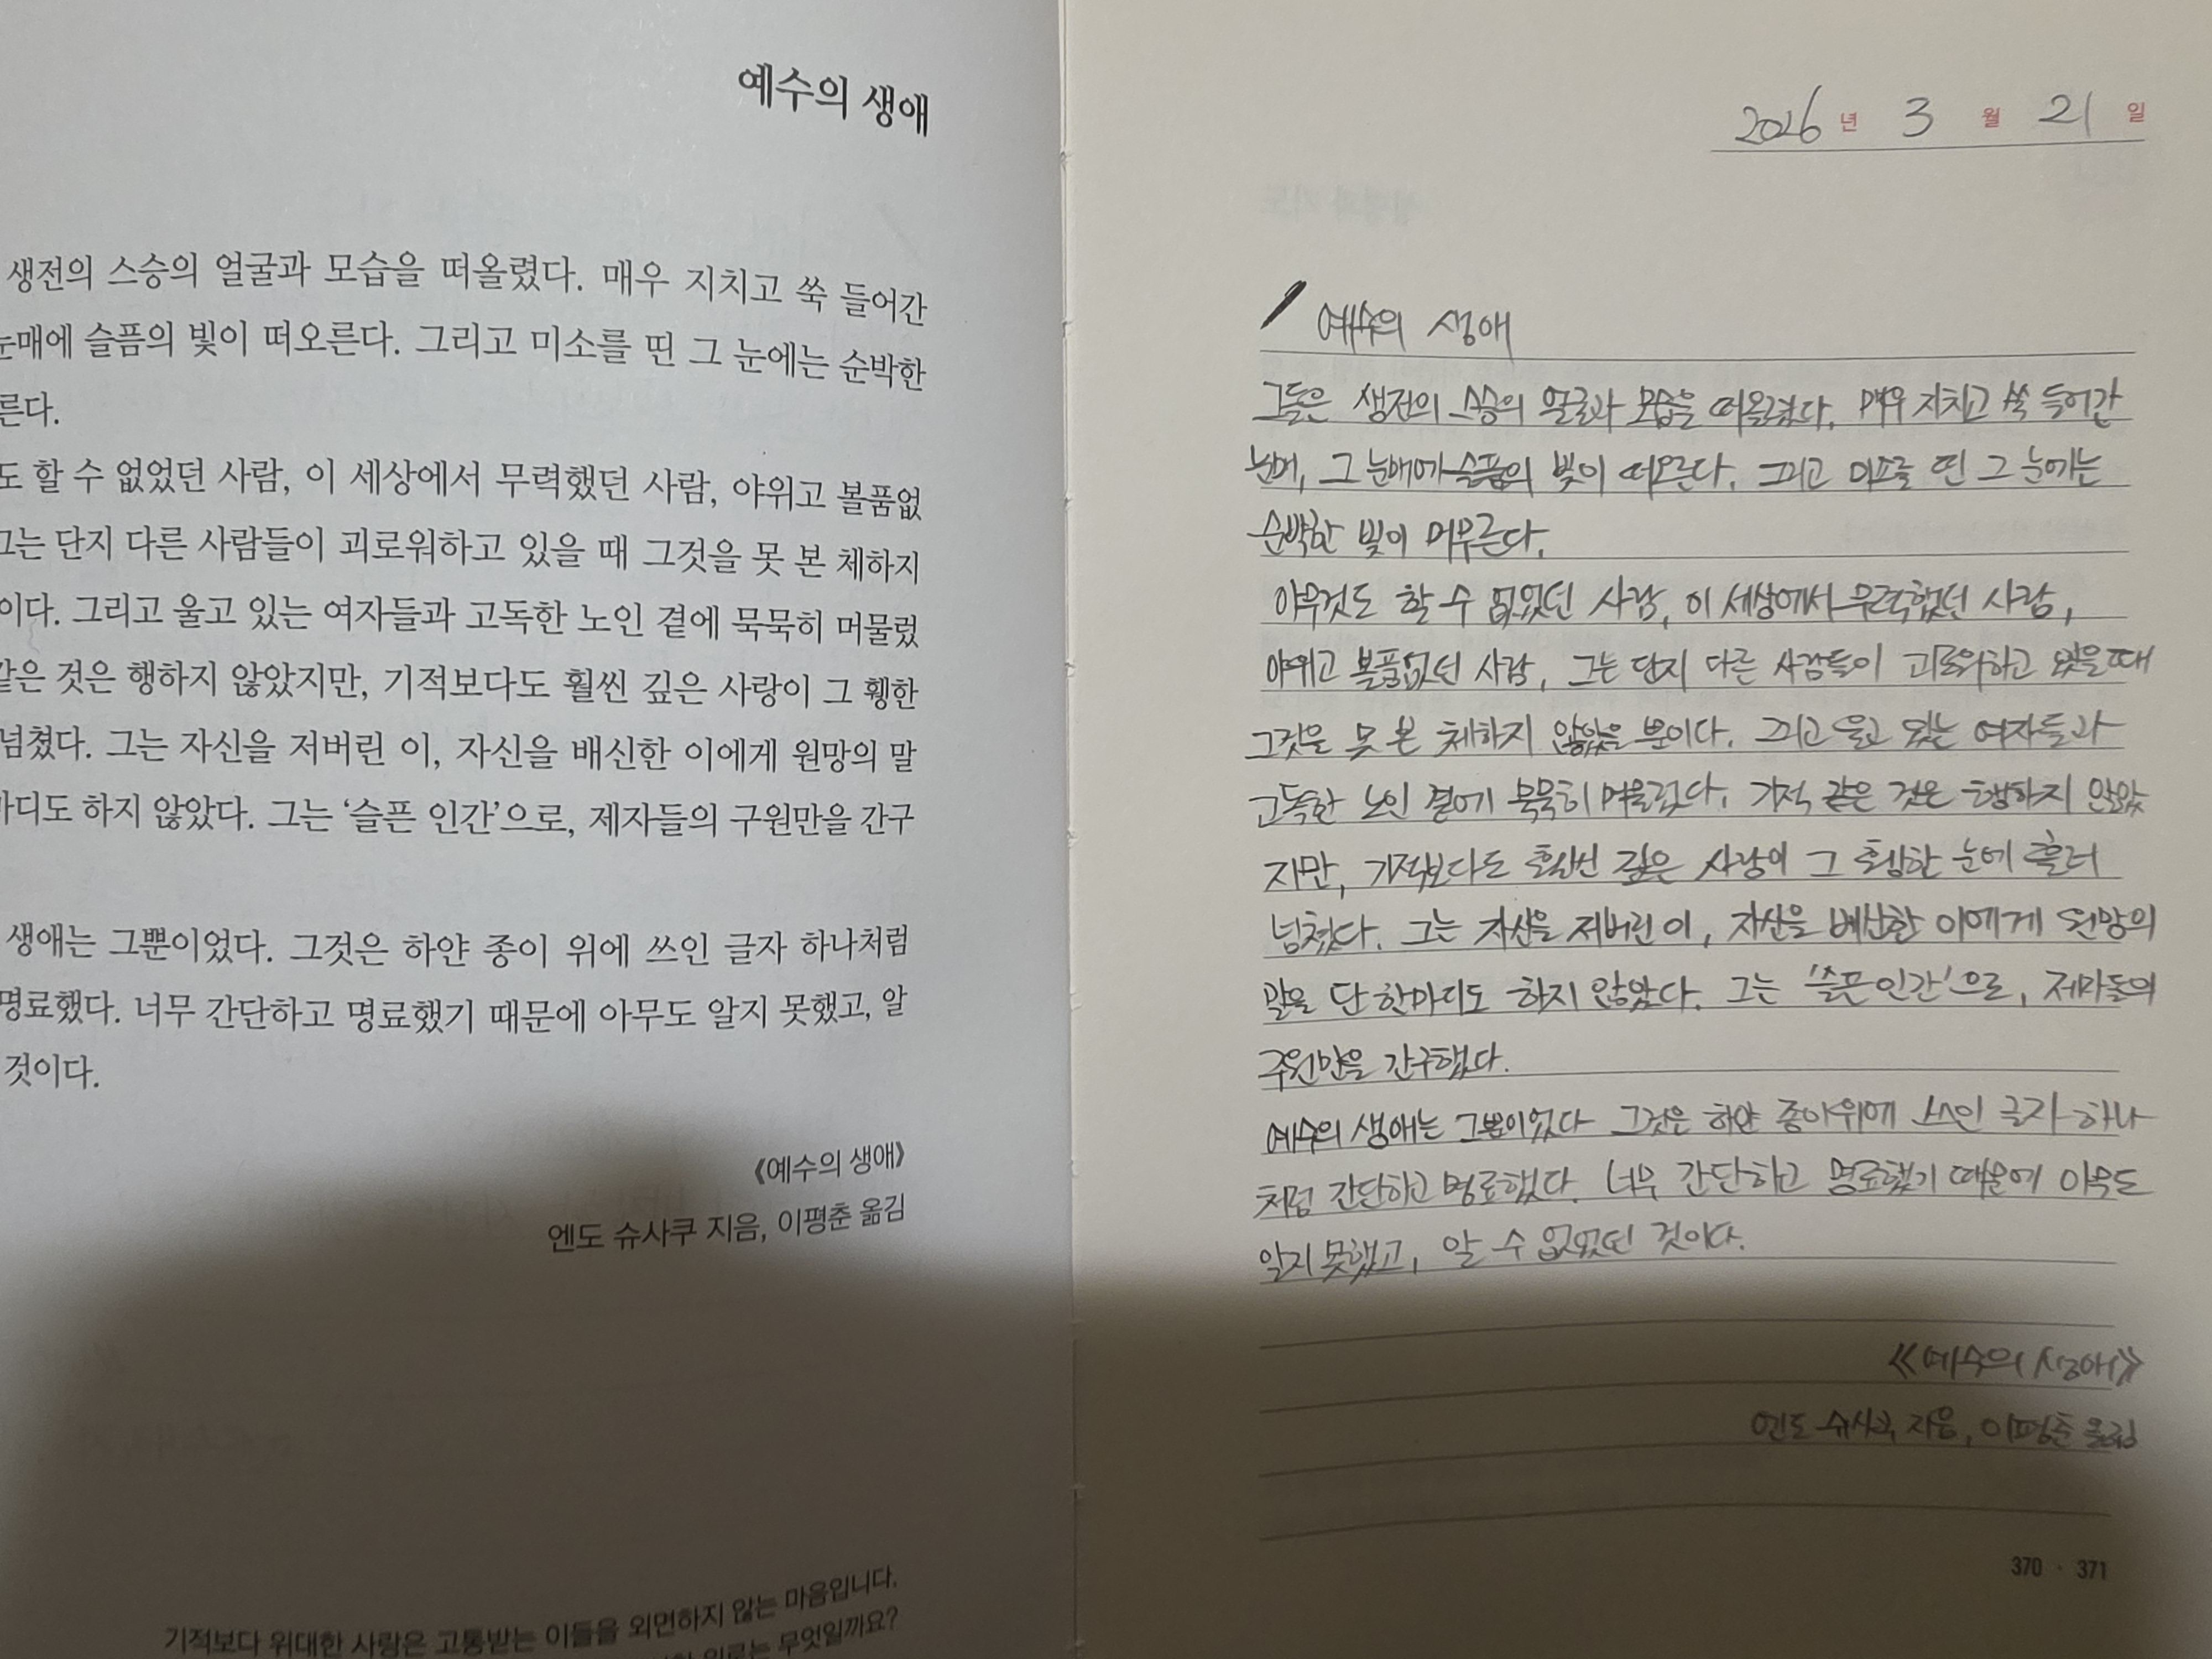 예수의 생애
생전의 스승의 얼굴과 모습을 떠올렸다. 매우 지치고 쑥 들어간
눈매에 슬픔의 빛이 떠오른다. 그리고 미소를 띤 그 눈에는 순박한
른다.
도 할 수 없었던 사람, 이 세상에서 무력했던 사람, 야위고 볼품없
그는 단지 다른 사람들이 괴로워하고 있을 때 그것을 못 본 체하지
이다. 그리고 울고 있는 여자들과 고독한 노인 곁에 묵묵히 머물렀
같은 것은 행하지 않았지만, 기적보다도 훨씬 깊은 사랑이 그 휑한
넘쳤다. 그는 자신을 저버린 이, 자신을 배신한 이에게 원망의 말
마디도 하지 않았다. 그는 ‘슬픈 인간’으로, 제자들의 구원만을 간구
생애는 그뿐이었다. 그것은 하얀 종이 위에 쓰인 글자 하나처럼
명료했다. 너무 간단하고 명료했기 때문에 아무도 알지 못했고, 알
것이다.
《예수의 생애》
엔도 슈사쿠 지음, 이평춘 옮김
기적보다 위대한 사랑은 고통받는 이들을 외면하지 않는 마음입니다.
위로는 무엇일까요?
2026년 3월 21일
예수의 생애
그들은 생전의 스승의 얼굴과 모습을 떠올렸다. 매우 지치고 쑥 들어간
눈, 그 눈매에 슬픔의 빛이 떠오른다. 그리고 미소를 띤 그 눈에는
순박한 빛이 머무른다.
아무것도 할 수 없었던 사람, 이 세상에서 무력했던 사람,
야위고 볼품없던 사람, 그는 단지 다른 사람들이 괴로워하고 있을 때
그것을 못 본 체하지 않았을 뿐이다. 그리고 울고 있는 여자들과
고독한 노인 곁에 묵묵히 머물렀다. 기적 같은 것은 행하지 않았
지만, 기적보다도 훨씬 깊은 사랑이 그 휑한 눈에 흘러
넘쳤다. 그는 자신을 저버린 이, 자신을 배신한 이에게 원망의
말을 단 한마디도 하지 않았다. 그는 '슬픈 인간'으로, 제자들의
구원만을 간구했다.
예수의 생애는 그뿐이었다 그것은 하얀 종이 위에 쓰인 글자 하나
처럼 간단하고 명료했다. 너무 간단하고 명료했기 때문에 아무도
알지 못했고, 알 수 없었던 것이다.
《예수의 생애》
엔도 슈사쿠 지음, 이평춘 옮김
370 · 371